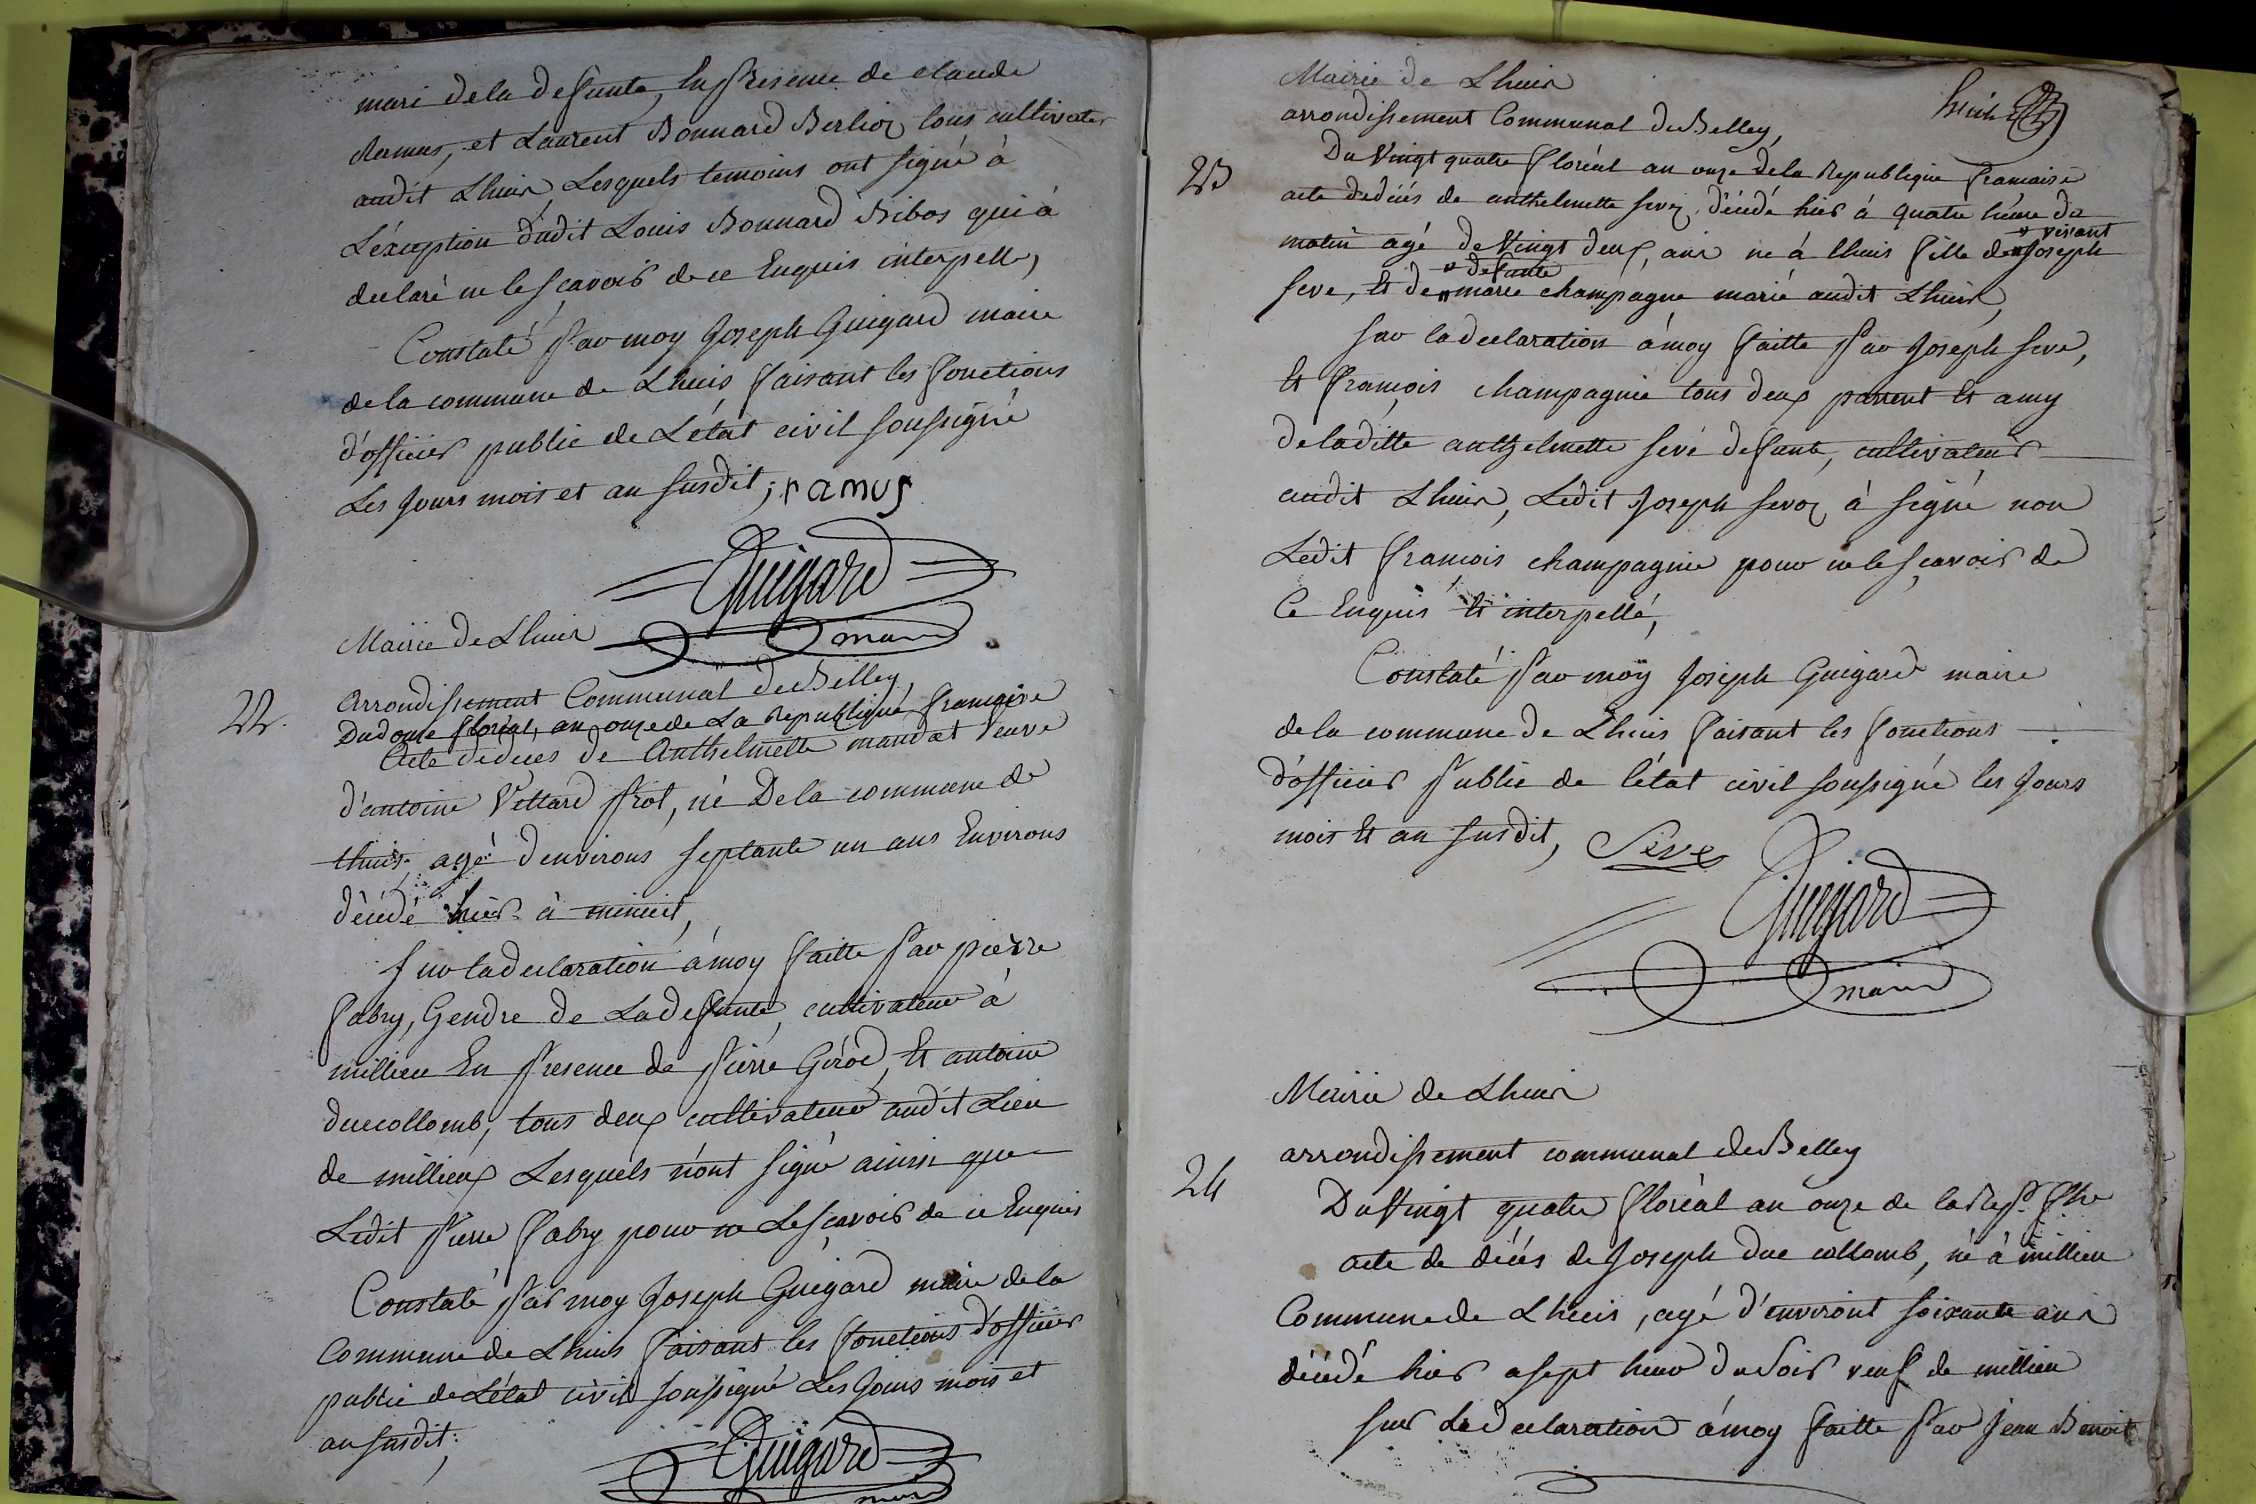 mari dela defunte, En Presence de claude
Ramus, et Laurent Bonnard Berlioz tous cultivater
audit Lhuis, Lesquels temoins ont signé à
L'éxception dudit Louis Bonnard Ribos qui à
declaré ne le sçavoir de ce Enquis interpellé,
Constaté Par moy Joseph Guigard maire
de la commune de Lhuis faisant les fonctions
d'officier public de L'état civil soussigné
Les Jours mois et an susdit, ramus
Guigard
maire
Mairie de Lhuis
22.
arrondissement Communal de Belley,
Du douze floréal, an onze de La Republique francaise
Acte de deces de Anthelmette mandat veuve
d'antoine Vettard frot, né De la commune de
Lhuis, agé d'environs septante un ans Environs
décédé hier à minuit,
sur la declaration à moy faitte Par pierre
fabry, Gendre de La defunte, cultivateur à
millieu En Presence de Pierre Gérod, Et antoine
duccollomb, tous deux cultivateur audit Lieu
de millieux Lesquels n'ont signé ainsi que
Ledit Pierre fabry pour ne Le sçavoir de ce Enquis
Constaté Par moy Joseph Guigard maire de la
Commune de Lhuis faisant les fonctions d'officier
public de L'état civil soussigné Les Jours mois et
an susdit;
Guigard
maire
Mairie de Lhuis
huit
arrondissement Communal de Belley,
23
Du Vingt quatre floréal an onze de la Republique francaise
acte de décés de anthelmette sevoz, décédé hier à quatre héure du
matin agé de Vingt deux, ans né à Lhuis fille de " vivant Joseph
seve, Et de " defunte marie champagne marié audit Lhuis,
sur la declaration à moy faitte Par Joseph seve,
Et francois champagnie tous deux parrent Et amy
de laditte anthelmette sevé defunte, cultivateurs
audit Lhuis, Ledit Joseph sevoz à signé non
Ledit francois champagnie pour ne le sçavoir de
Ce Enquis Et interpellé,
Constaté Par moÿ Joseph Guigard maire
de la commune de Lhuis faisant les fonctions
d'officier Public de l'état civil soussigné les Jours
mois Et an susdit, Seve
Guigard
maire
Mairie de Lhuis
arrondissement communal de Belley
24
Du Vingt quatre floréal an onze de la Rep. fse
acte de décés de Joseph duc collomb, né à millieu
Commune de Lhuis, agé d'environt soixante ans
décédé hier a sept heur du soir veuf de millieu
sur La declaration à moy faitte Par Jean Benoit